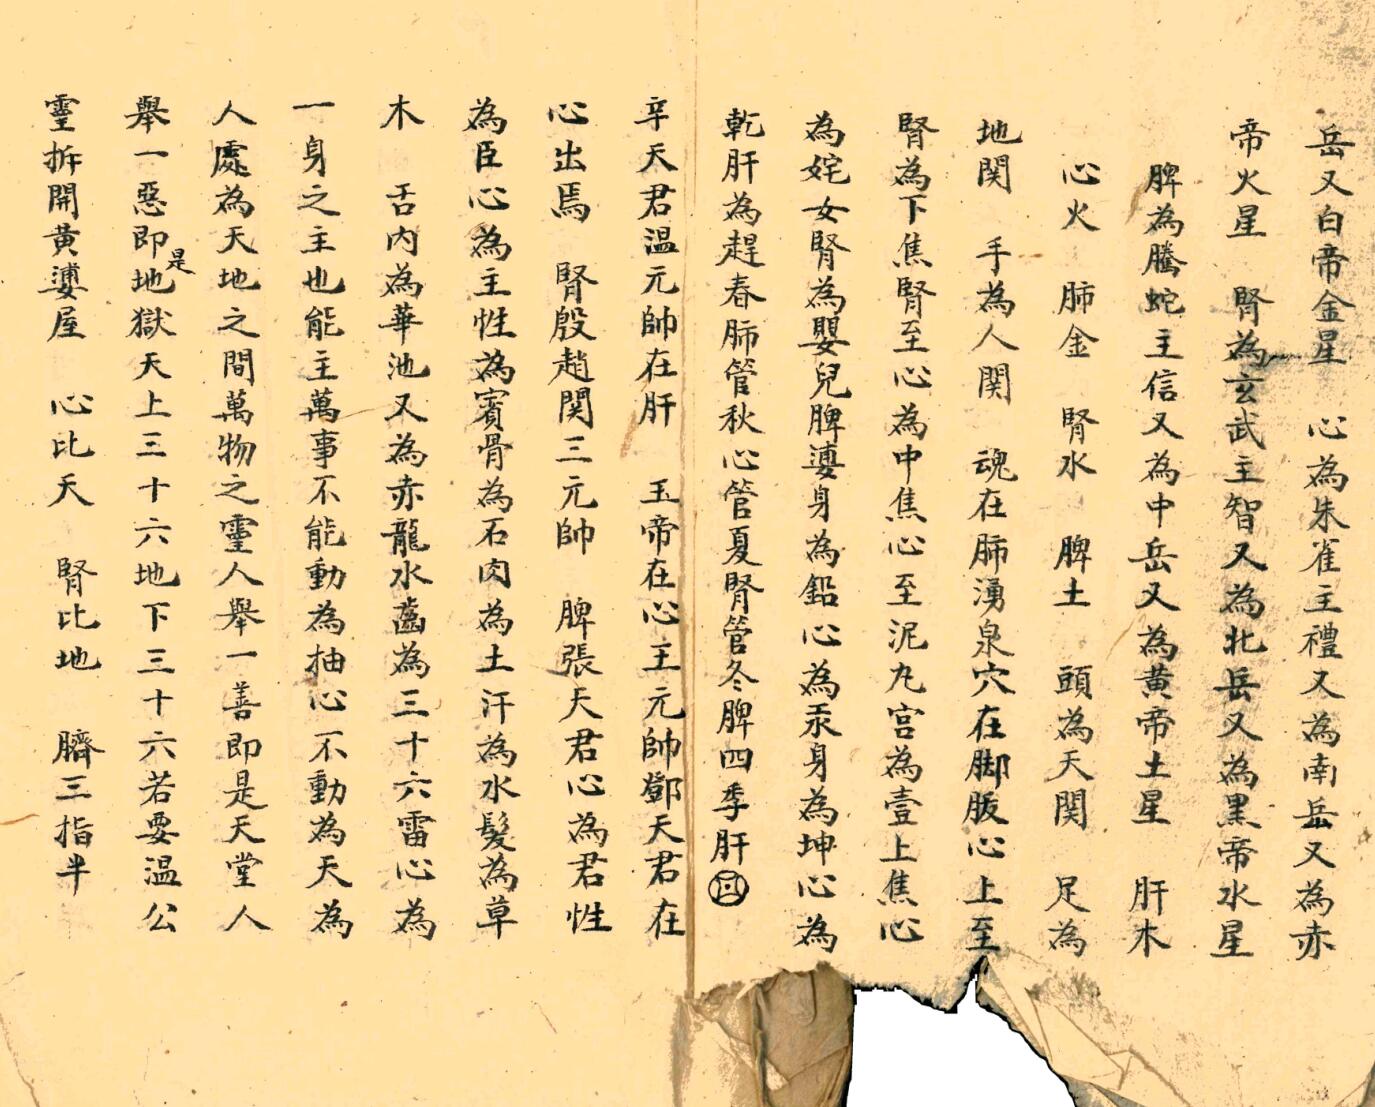 岳又白帝金星　心為朱雀主禮又為南岳又為赤
帝火星　腎為玄武主智又為北岳又為黑帝水星
脾為騰蛇主信又為中岳又為黄帝土星　肝木
心火　肺金　腎水　脾土　頭為天関　足為
地関　手為人関　魂在肺湧泉穴在脚版心上至
腎為下焦腎至心為中焦心至泥丸宫為壹上焦心
為姹女腎為嬰兒脾𮞉身為鉛心為汞身為坤心為
乾肝為趕春肺管秋心管夏腎管冬脾四季肝
辛天君温元帥在肝　玉帝在心王元帥鄧天君在
心出焉　腎殷趙関三元帥　脾張天君心為君性
為臣心為主性為賓骨為石肉為土汗為水髮為草
木　舌内為華池又為赤龍水齒為三十六雷心為
一身之主也能主萬事不能動為抽心不動為天為
人處為天地之間萬物之靈人舉一善即是天堂人
舉一惡即是地獄天上三十六地下三十六若要温公
靈拆開黄婆屋　心比天　腎比地　臍三指半